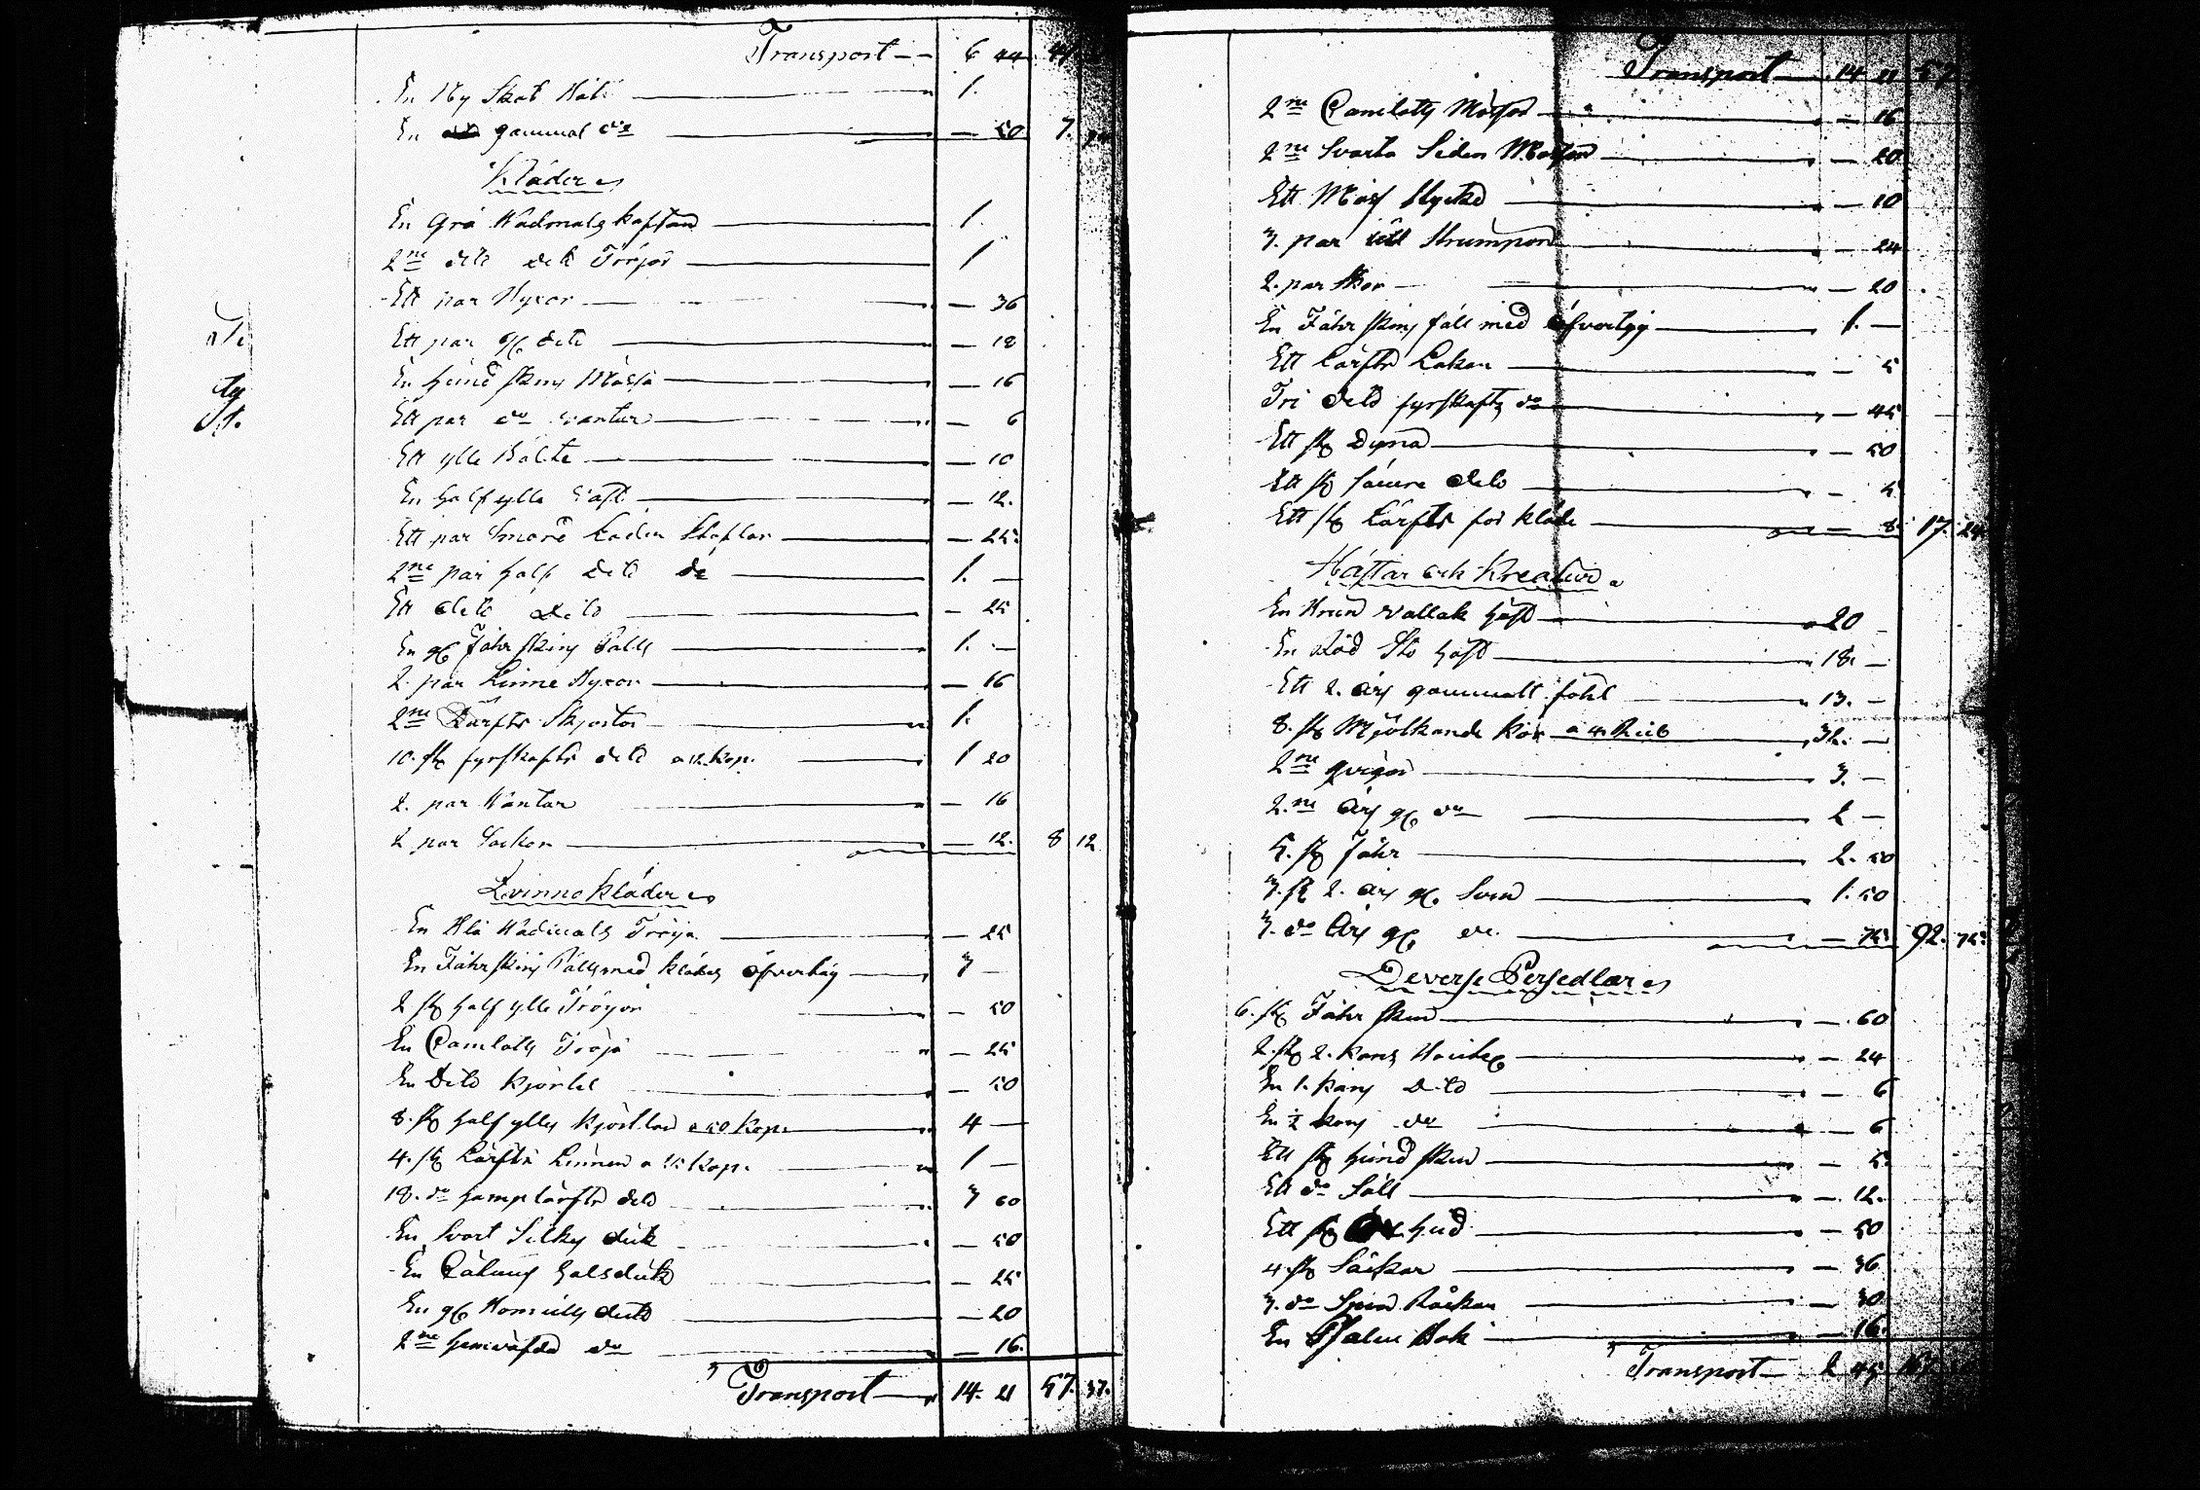 Transport — 6 44 41
En Ny Skot Båt — 1.
En gammal do — 50 7. 94
Kläder
En Grå Wadmals kaftan — 1.
2ne dito dito Tröjor — 1
Ett par Byxor — 36
Ett par gl dito — 18
En hund skins Mössa — 16
Ett par do vantar — 6
Ett ylle Bälte — 10
En half ylle Väst — 12.
Ett par Smord Läder Stöflar — 25.
2ne par half dito do — 1. —
Ett dito dito — 25
En gl Fåhr skins Päls — 1. —
2. par Linne Byxor — 16
2ne Lärfts Skjortor — 1.
10. st fyrskafts dito a 12. kop. — 1 20
2. par Vantar — 16
2 par Sockor — 12. 8 12
Qvinno kläder
En Blå Wadmals Tröja — 25
En Fåhrskins Päls med klädes öfvertåg — 3 —
2 st half ylle Tröjor — 50
En Camlotts Tröja — 25
En Dito kjortel — 50
8. st half ylle kjortlar a 50 kop. — 4 —
4. st Lärfts Linnen a 25 kop. — 1 —
18. do hamplärfts dito — 3 60
En Svart Silkes duk — 50
En halsduk — 25
En gl Bomulls duk — 20
2ne hemväfda do — 16.
Transport — 14. 21 57. 37.
Transport — 14 21 57
2ne Camlotts Mössor — 16
2ne Svarta Siden Mössor — 20
Ett Möss Stycke — 10
3. par ull Strumpor — 24
2. par Skor — 20
En Fåhr skins fäll med öfvertyg — 1. —
Ett Lärfts Lakan — 5
Tri dito fyrskafts do — 45
Ett st Dyna — 50
Ett st sämre dito — 5
Ett st Lärfts för kläde — 8. 17. 24
Hästar och Kreatur
En Brun vallak häst — 20 —
En Röd Sto häst — 18. —
Ett 2. års gammalt föhl — 13. —
8. st Mjölkande kor a 4. Rub — 32. —
2ne qvigor — 3. —
2.ne Års gl do — 2 —
5. st Fåhr — 2. 50
3. st 2. års gl. Svin — 1. 50
3. do Års gl do. — 75. 92. 75.
Deverse Persedlar
6. st Fåhr skin — 60
2. st 2. kars — 24
En 1. kars Dito — 6
En ½ kars do — 6
Ett st hund skin — 5
Ett do Säll — 12.
Ett st hud — 50
4. st Säckar — 36
3. do Spin Råckar — 30
En Psalm Bok — 16.
Transport — 2 45